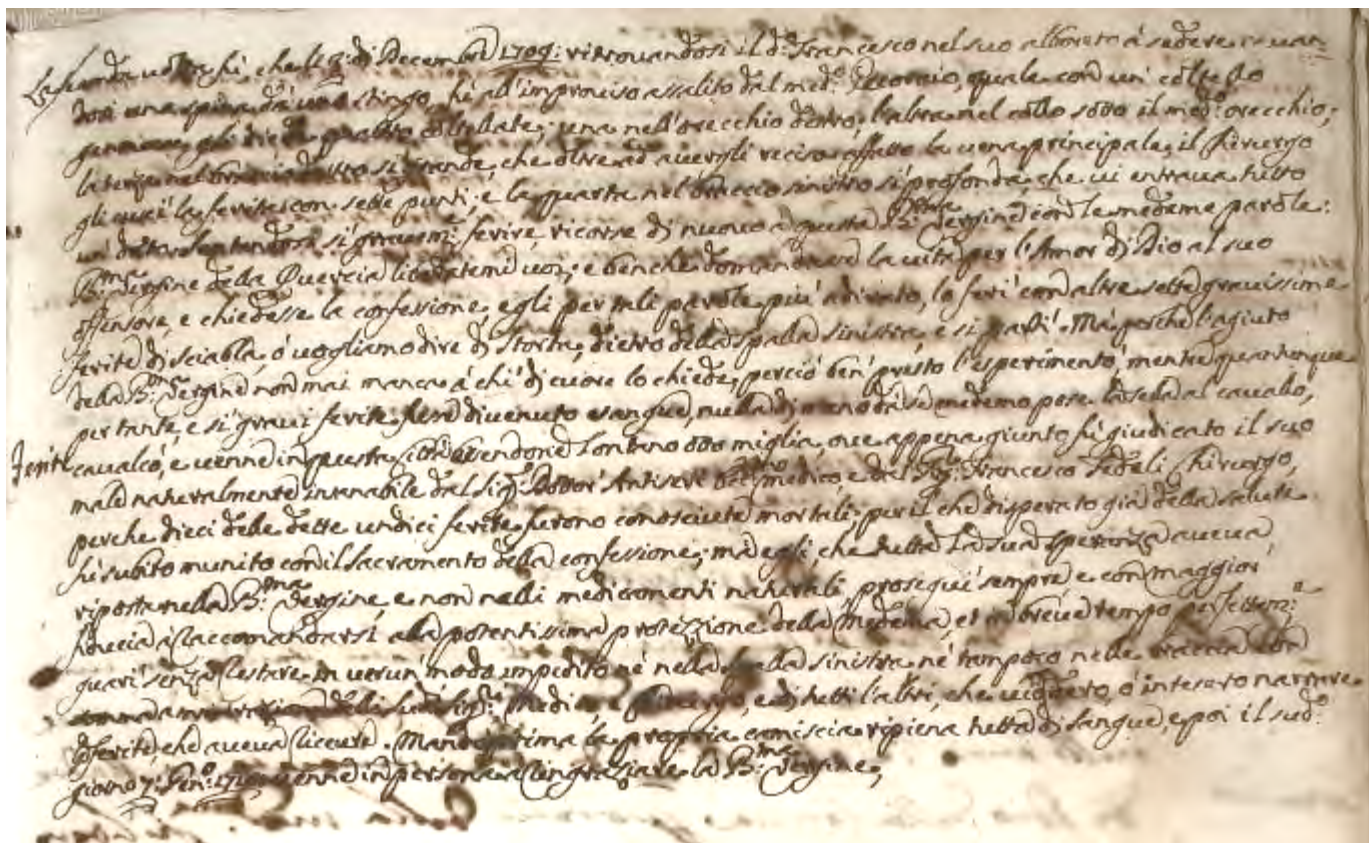 La seconda volta fù, che li 9: di Decembre 1709: ritrovandosi il dº: Francesco nel suo alboreto à sedere, e cavan
dosi una spina da uno stingo, fù all'improviso assalito dal medº: Decornio, quale con un' coltello
gli diede quattro coltellate, una nell'orecchio destro, l'altra nel collo sotto il medº: orecchio;
la terza nel braccio destro sì grande, che oltre ad avergli reciso affatto la vena principale, il Chirurgo
gli cucì la ferita con sette punti; e la quarta nel braccio sinistro sì profonda, che vi entrava tutto
un' dito. Sentendosi sì gravemẽ: ferire, ricorse di nuovo à questa Bma: Vergine con le medeme parole:
Bma: Vergine della Quercia liberatemi voi; e benche domandasse la vita per l'Amor di Dio al suo
offensore, e chiedesse la confessione, egli per tali parole più adirato, lo ferì con altre sette gravissime
ferite di sciabla, ò vogliamo dire di Storta, dietro della spalla sinistra, e si partì. Mà perche l'agiuto
della Bma: Vergine non mai manca à chi di cuore lo chiede, perciò ben' presto l'esperimentò, mentre quantunque
per tante, e sì gravi ferite fusse divenuto esangue, nulla di meno da se medemo pose la sella al cavallo,
cavalcò, e venne in questa Città essendone lontano otto miglia, ove appena giunto fù giudicato il suo
male naturalmente insanabile dal Sigr: Dottor Antisere medico, e dal Sigr: Francesco Fedeli Chirurgo,
perche dieci delle dette undici ferite furono conosciute mortali; per il che disperato già della salute
fù subito munito con il Sacramento della confessione; mà egli, che tutta la sua speranza aveva
riposta nella Bma: Vergine, e non nelli medicamenti naturali, proseguì sempre e con maggior
fiducia à raccomandarsi alla potentissima protezzione della Medema, et in breve tempo perfettemẽ:
guarì senza restare in verun' modo impedito nè nella spalla sinistra nè tampoco nelle braccia con
ammirazione delli sudi: Sigri: Medico, e Chirurgo, e di tutti l'altri, che viddero, ò intesero narrare
le ferite, che aveva ricevute. Mandò prima la propria camiscia ripiena tutta di sangue, e poi il sudº:
giorno 7: Genº: 1710 venne in persona à ringraziare la Bma: Vergine;